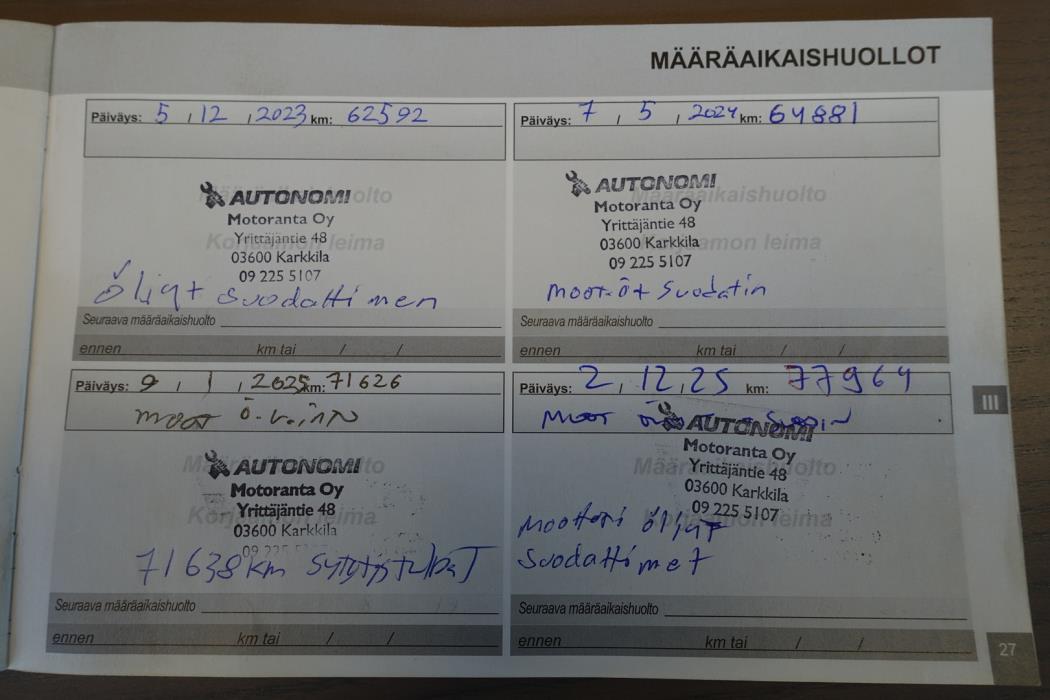 MÄÄRÄAIKAISHUOLLOT
Päiväys: 5 / 12 / 2023 km: 62592
Määräaikaishuolto
AUTONOMI
Motoranta Oy
Korjaamon leima
Yrittäjäntie 48
03600 Karkkila
09 225 5107
Öljyt suodattimen
Seuraava määräaikaishuolto
ennen km tai / /
Päiväys: 7 / 5 / 2024 km: 64881
Määräaikaishuolto
AUTONOMI
Motoranta Oy
Korjaamon leima
Yrittäjäntie 48
03600 Karkkila
09 225 5107
moot.öt suodatin
Seuraava määräaikaishuolto
ennen km tai / /
Päiväys: 9 / 1 / 2025 km: 71626
moot ö.
Määräaikaishuolto
AUTONOMI
Motoranta Oy
Korjaamon leima
Yrittäjäntie 48
03600 Karkkila
09 225 5107
71638km sytytystulpaT
Seuraava määräaikaishuolto
ennen km tai / /
Päiväys: 2 / 12 / 25 km: 77964
moot
Määräaikaishuolto
AUTONOMI
Motoranta Oy
Korjaamon leima
Yrittäjäntie 48
03600 Karkkila
09 225 5107
moottori öljyT
Suodattimet
Seuraava määräaikaishuolto
ennen km tai / /
III
27